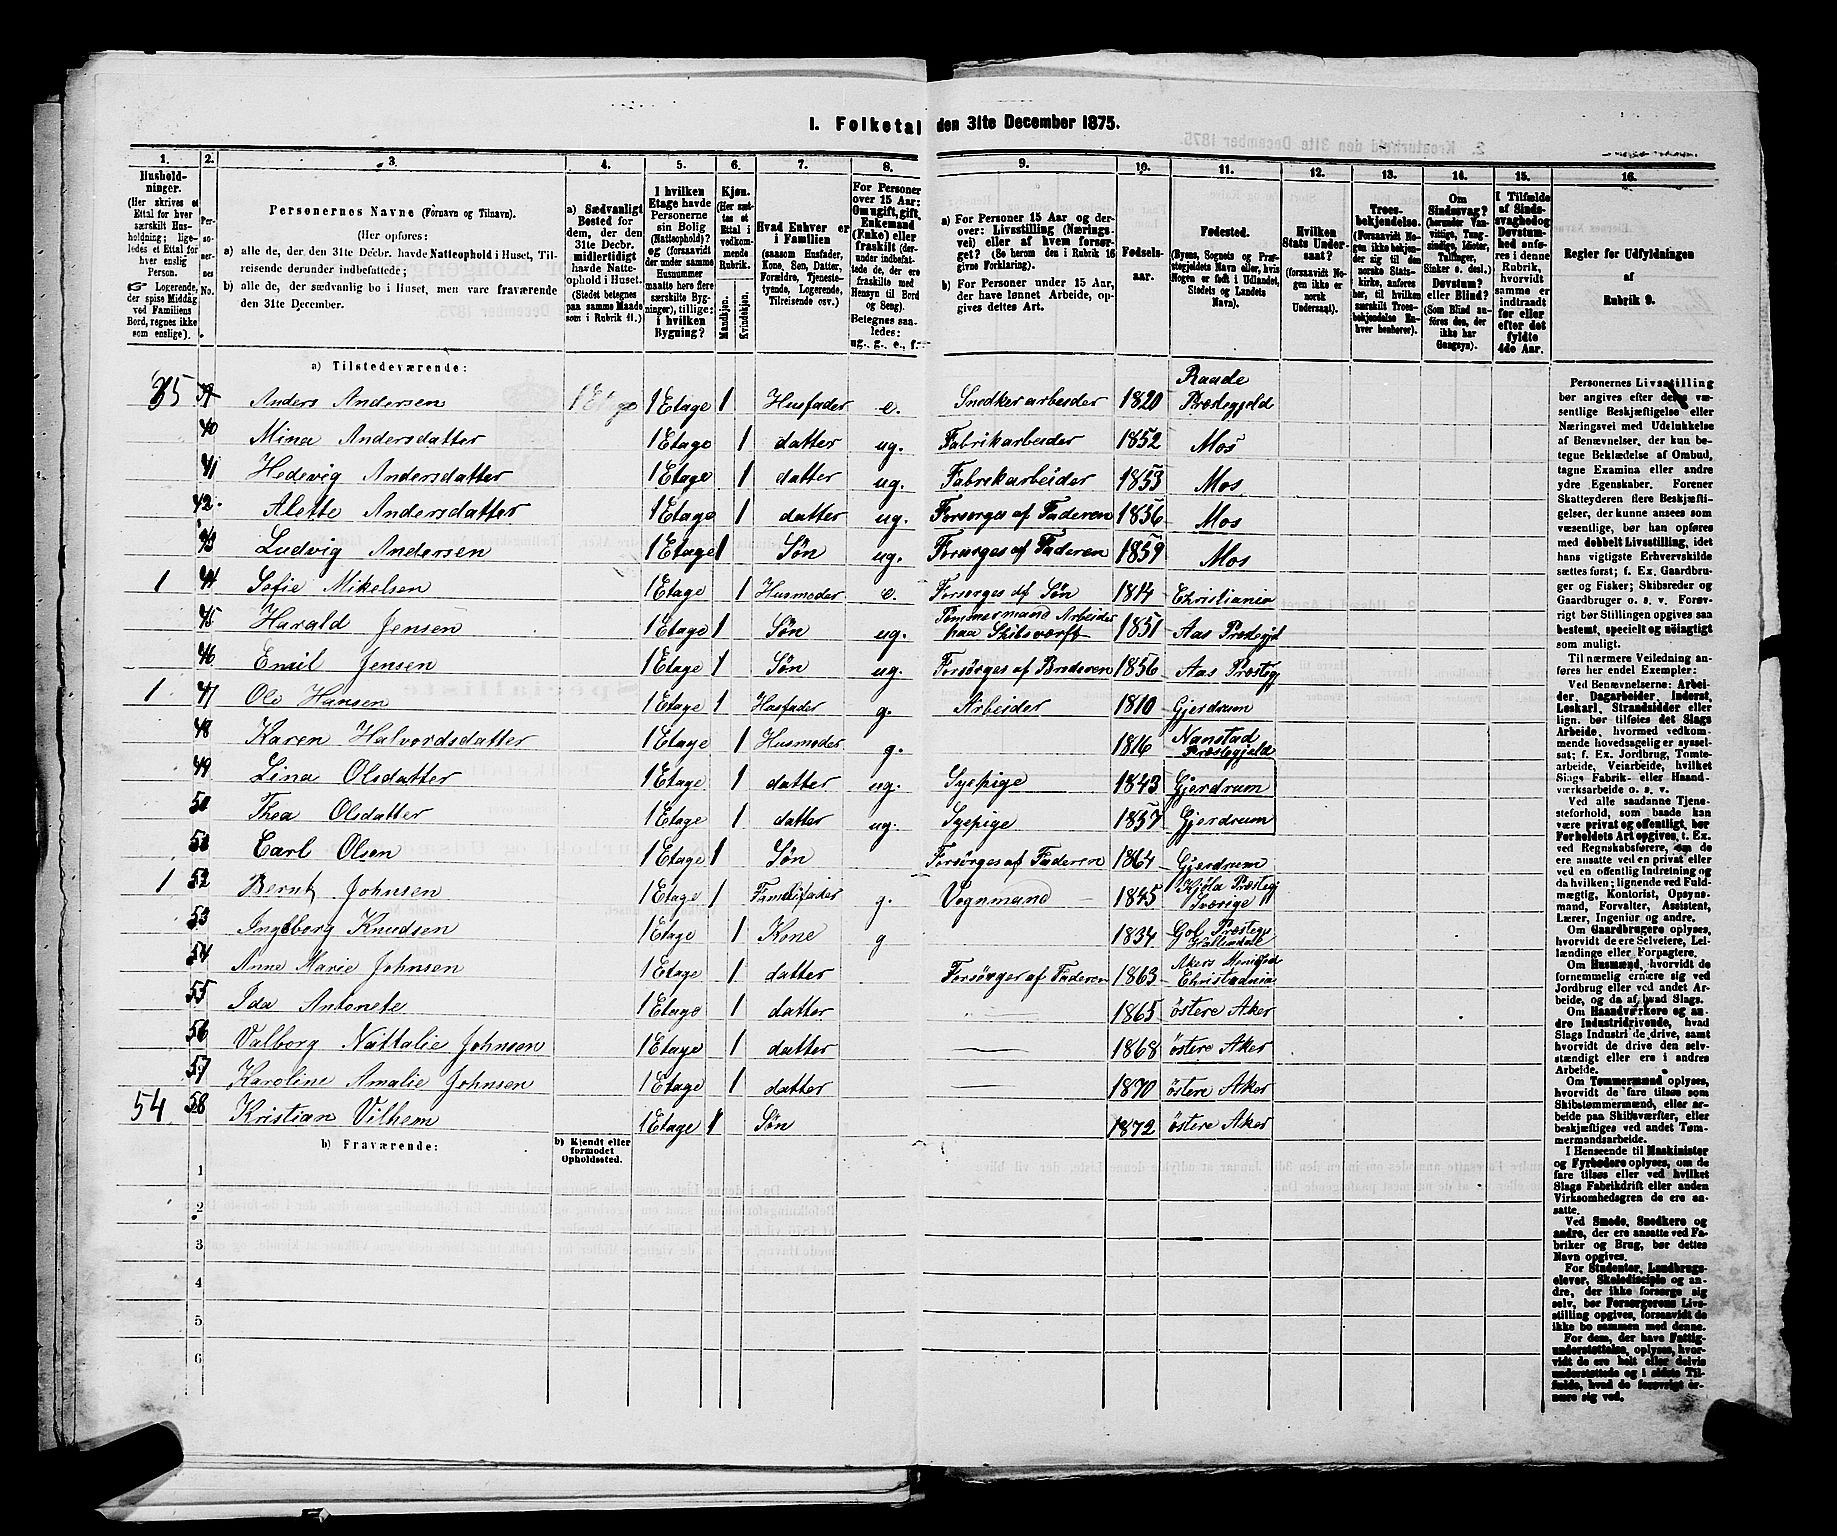 I. Folketal den 31te December 1875.
1. 2. 3. 4. 5. 6. 7. 8. 9. 10. 11. 12. 13. 14. 15. 16.
Hushold-
ninger.
(Her skrives et
Ettal for hver
særskilt Hus-
holdning; lige-
ledes et Ettal for
hver enslig
Person.
Logerende,
der spise Middag
ved Familiens
Bord, regnes ikke
som enslige).
Per-
so-
ner-
nes
No.
Personernes Navne (Fornavn og Tilnavn).
(Her opføres:
a) alle de, der den 31te Decbr. havde Natteophold i Huset, Til-
reisende derunder indbefattede;
b) alle de, der sædvanlig bo i Huset, men vare fraværende
den 31te December.
a) Sædvanligt
Bosted for
dem, der den
31te Decbr.
midlertidigt
havde Natte-
ophold i Huset.
(Stedet betegnes
paa samme Maade
som i Rubrik 11.)
I hvilken
Etage havde
Personerne
sin Bolig
(Natteophold)?
og (forsaavidt
der under samme
Husnummer
maatte høre flere
særskilte Byg-
ninger), tillige:
i hvilken
Bygning?
Kjøn.
(Her sæt-
tes et
Ettal i
vedkom-
mende
Rubrik.
Mandkjøn.
Kvindekjøn.
Hvad Enhver er
i Familien
(saasom Husfader,
Kone, Søn, Datter,
Forældre, Tjeneste-
tyende, Logerende,
Tilreisende osv.)
For Personer
over 15 Aar:
Om ugift, gift,
Enkemand
(Enke) eller
fraskilt (der-
under indbefat-
tede de, der ere
fraskilte med
Hensyn til Bord
og Seng).
Betegnes saa-
ledes:
ug., g., e., f.
a) For Personer 15 Aar og der-
over: Livsstilling (Nærings-
vei) eller af hvem forsør-
get? (Se herom den i Rubrik 16
givne Forklaring).
b) For Personer under 15 Aar,
der have lønnet Arbeide, op-
gives dettes Art.
Fødsels-
aar.
Fødested.
(Byens, Sognets og Præ-
stegjeldets Navn eller, hvis
Nogen er født i Udlandet,
Stedets og Landets
Navn).
Hvilken
Stats Under-
saat?
(forsaavidt No-
gen ikke er
norsk
Undersaat).
Troes-
bekjendelse.
(Forsaavidt No-
gen ikke bekjen-
der sig til den
norske Stats-
kirke, anføres
her, til hvilken
særskilte Troes-
bekjendelse En-
hver henhører).
Om
Sindssvag?
(herunder Van-
vittige, Tung-
sindige, Idioter,
Taftinger,
Sinker o. desl.)
Døvstum?
eller Blind?
(Som Blind an-
føres den, der
ikke har
Gangsyn).
I Tilfælde
af Sinds-
svaghed og
Døvstum-
hed anfø-
res i denne
Rubrik,
hvorvidt
samme er
indtraadt
før eller
efter det
fyldte
4de Aar.
Regler for Udfyldningen
af
Rubrik 9.
a) Tilstedeværende:
35 39 Anders Andersen 1 Etage 1 Etage 1 Husfader e. Snedker arbeider 1820 Raade Præstegjeld
40 Mina Andersdatter 1 Etage 1 datter ug. Fabrikarbeider 1852 Mos
41 Hedevig Andersdatter 1 Etage 1 datter ug. Fabrikarbeider 1853 Mos
42 Alette Andersdatter 1 Etage 1 datter ug. Forsørges af Faderen 1856 Mos
43 Ludvig Andersen 1 Etage 1 Søn ug. Forsørges af Faderen 1859 Mos
1 44 Sofie Mikelsen 1 Etage 1 Husmoder e. Forsørges af Søn 1814 Christiania
45 Harald Jensen 1 Etage 1 Søn ug. Tømmermand Arbeider paa Skibsværft 1851 Aas Prestegjd
46 Emil Jensen 1 Etage 1 Søn ug. Forsørges af Broderen 1856 Aas Præsteg
1 47 Ole Hansen 1 Etage 1 Husfader g. Arbeider 1810 Gjerdrum
48 Karen Halvordsdatter 1 Etage 1 Husmoder g. 1816 Nanstad Præstegjeld
49 Lina Olsdatter 1 Etage 1 datter ug. Syepige 1843 Gjerdrum
50 Thea Olsdatter 1 Etage 1 datter ug. Syepige 1857 Gjerdrum
51 Carl Olsen 1 Etage 1 Søn Forsørges af Faderen 1864 Gjerdrum
1 52 Bernt Johnsen 1 Etage 1 Familifader g. Vognmand 1845 Kjøla Præstegj Sverige
53 Ingeborg Knudsen 1 Etage 1 Kone g 1834 Gol Præstegj
54 Anne Marie Johnsen 1 Etage 1 datter Forsørger af Faderen 1863 Akers Christiania
55 Ida Antonete 1 Etage 1 datter — 1865 østere Aker
56 Valborg Nattalie Johnsen 1 Etage 1 datter — 1868 østere Aker
57 Karoline Amalie Johnsen 1 Etage 1 datter — 1870 østere Aker
54 58 Kristian Vilhem 1 Etage 1 Søn 1872 østere Aker
b) Fraværende:
b) Kjendt eller
formodet
Opholdssted.
1
2
3
4
5
6
Personernes Livsstilling
bør angives efter deres væ-
sentlige Beskjæftigelse eller
Næringsvei med Udelukkelse
af Benævnelser, der kun be-
tegne Beklædelse af Ombud,
tagne Examina eller andre
ydre Egenskaber. Forener
Skatteyderen flere Beskjæfti-
gelser, der kunne ansees som
væsentlige, bør han opføres
med dobbelt Livsstilling, idet
hans vigtigste Erhvervskilde
sættes først; f. Ex. Gaardbru-
ger og Fisker; Skibsreder og
Gaardbruger o. s. v. Forøv-
rigt bør Stillingen opgives saa
bestemt, specielt og nöiagtigt
som muligt.
Til nærmere Veiledning an-
føres her endel Exempler:
Ved Benævnelserne: Arbei-
der, Dagarbeider, Inderst,
Løskarl, Strandsidder eller
lign. bør tilføies det Slags
Arbeide, hvormed vedkom-
mende hovedsagelig er syssel-
sat; f. Ex. Jordbrug, Tomte-
arbeide, Veiarbeide, hvilket
Slags Fabrik- eller Haand-
værksarbeide o. s. v.
Ved alle saadanne Tjene-
steforhold, som baade kan
være privat og offentligt, bør
Forholdets Art opgives, f. Ex.
ved Regnskabsførere, om de
ere ansatte ved en privat eller
ved en offentlig Indretning og
da hvilken; lignende ved Fuld-
mægtig, Kontorist, Opsyns-
mand, Forvalter, Assistent,
Lærer, Ingeniør og andre.
Om Gaardbrugere oplyses,
hvorvidt de ere Selveiere, Lei-
lændinge eller Forpagtere.
Om Husmænd, hvorvidt de
fornemmelig ernære sig ved
Jordbrug eller ved andet Ar-
beide, og da af hvad Slags.
Om Haandværkere og an-
dre Industridrivende, hvad
Slags Industri de drive, samt
hvorvidt de drive den selv-
stændigt eller ere i andres
Arbeide.
Om Tømmermænd oplyses,
hvorvidt de fare tilsøs som
Skibstømmermænd, eller ar-
beide paa Skibsværfter, eller
beskjæftiges ved andet Tøm-
mermandsarbeide.
I Henseende til Maskinister
og Fyrbødere oplyses, om de
fare tilsøs eller ved hvilket
Slags Fabrikdrift eller anden
Virksomhedsgren de ere an-
satte.
Ved Smede, Snedkere og
andre, der ere ansatte ved Fa-
briker og Brug, bør dettes
Navn opgives.
For Studenter, Landbrugs-
elever, Skoledisciple og an-
dre, der ikke forsørge sig
selv, bør Forsørgerens Livs-
stilling opgives, forsaavidt de
ikke bo sammen med denne.
For dem, der have Fattig-
understøttelse, oplyses, hvor-
vidt de ere helt eller delvis
understøttede og i sidste Til-
fælde, hvad de forøvrigt er-
nære sig ved.